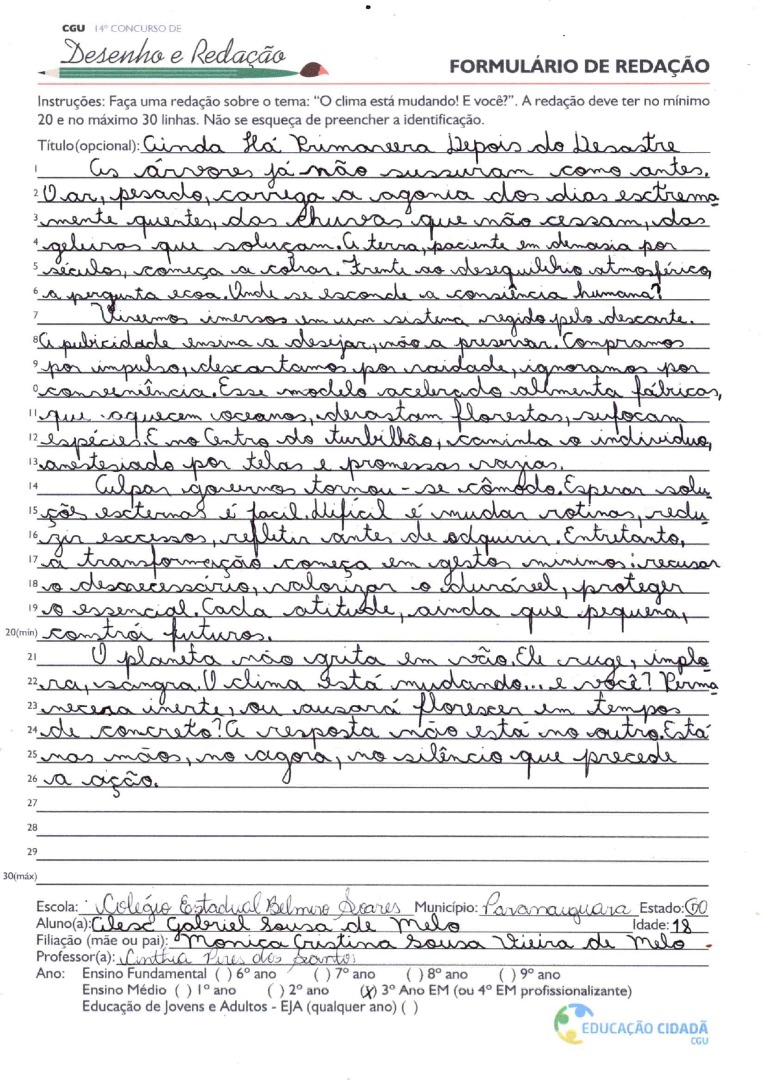 CGU 14º CONCURSO DE
Desenho e Redação
FORMULÁRIO DE REDAÇÃO
Instruções: Faça uma redação sobre o tema: "O clima está mudando! E você?". A redação deve ter no mínimo
20 e no máximo 30 linhas. Não se esqueça de preencher a identificação.
Título(opcional): Ainda Há Primavera Depois do Desastre
1 As árvores já não sussuram como antes.
2 O ar, pesado, carrega a agonia dos dias esctrema
3 mente quentes, das chuvas que não cessam, das
4 geleiras que soluçam. A terra, paciente em demasia por
5 séculos, começa a cobrar. Frente ao desequilibrio atmosférico,
6 a pergunta ecoa. Onde se esconde a consiência humana?
7 Vivemos imersos em um sistema regido pelo descarte.
8 A pubricidade ensina a desejar, não a preservar. Compramos
9 por impulso, descartamos por vaidade, ignoramos por
0 conveniência. Esse modelo acelerado alimenta fábricas,
11 que aquecem oceanos, devastam florestas, sufocam
12 espécies. E no Centro do turbilhão, caminha o individuo,
13 anestesiado por telas e promessas vazias.
14 Culpar governos tornou-se cômodo. Esperar solu
15 ções escternas é facil. Dificil é mudar rotinas, redu
16 zir escessos, refletir antes de adquirir. Entretanto,
17 a transformação começa em gestos minimos: recusar
18 o desnecessário, valorizar o durável, proteger
19 o essencial. Cada atitude, ainda que pequena,
20(min) constrói futuros.
21 O planeta não grita em vão. Ele ruge, implo
22 ra, sangra. O clima está mudando... e você? Perma
23 necera inerte, ou ousará florescer em tempos
24 de concreto? A resposta não está no outro. Está
25 nas mãos, no agora, no silêncio que precede
26 a ação.
27
28
29
30(máx)
Escola: Colégio Estadual Belmiro Soares Município: Paranaiguara Estado: GO
Aluno(a): Alesc Gabriel Sousa de Melo Idade: 18
Filiação (mãe ou pai): Monica Cristina Sousa Vieira de Melo
Professor(a): Cinthia Pires dos Santos
Ano: Ensino Fundamental ( ) 6º ano ( ) 7º ano ( ) 8º ano ( ) 9º ano
Ensino Médio ( ) 1º ano ( ) 2º ano (X) 3º Ano EM (ou 4º EM profissionalizante)
Educação de Jovens e Adultos - EJA (qualquer ano) ( )
EDUCAÇÃO CIDADÃ
CGU